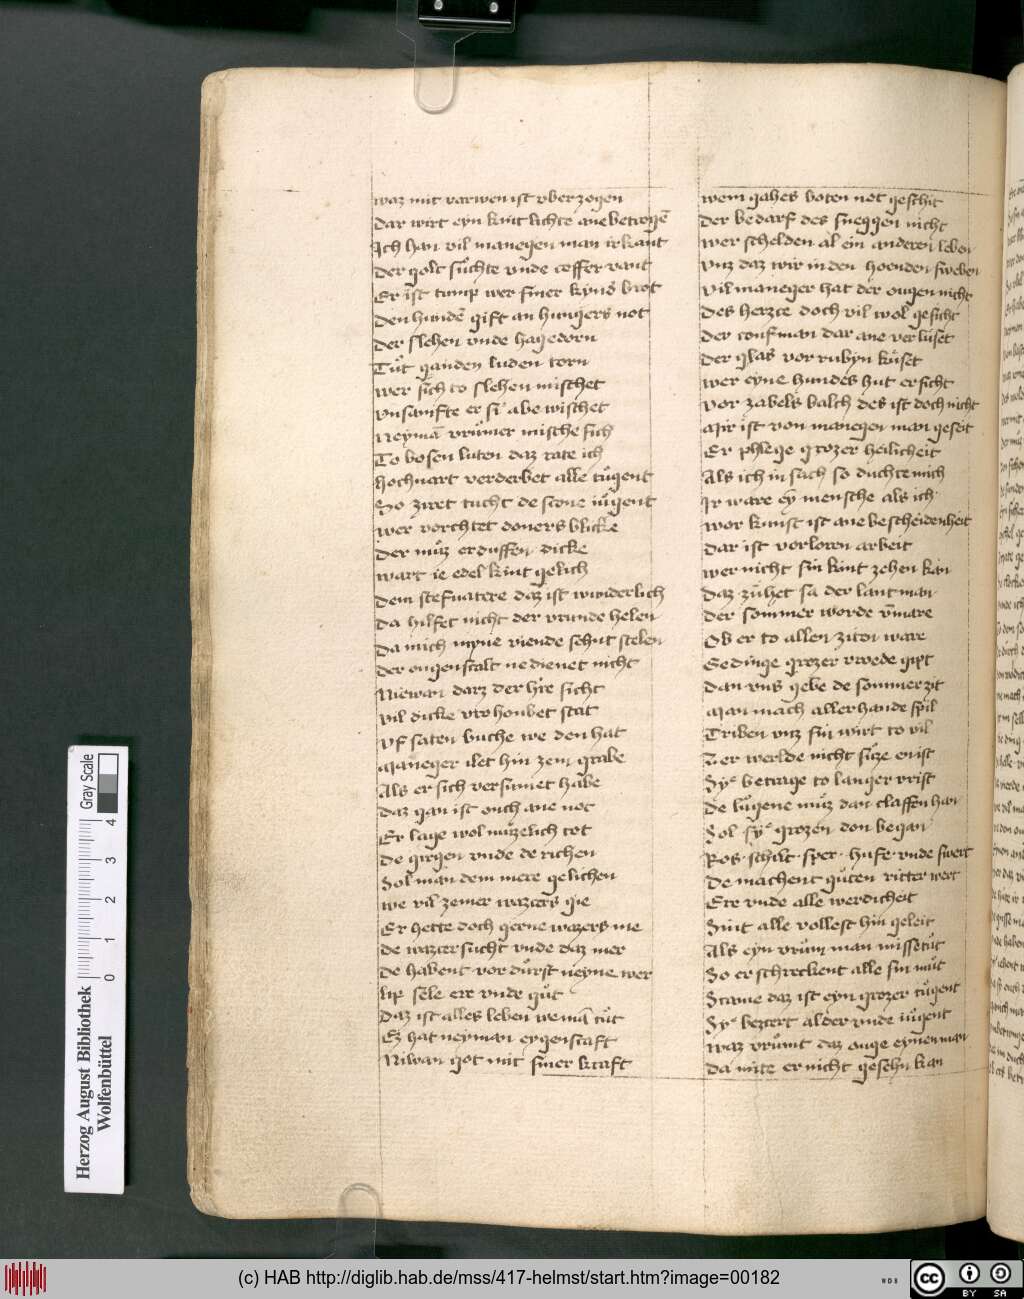 waz mit varwen ist vberzogen
Dar wirt eyn kint lichte ane betrogē
Ich han vil manegen man irkant
Der golt suͦchte vnde coffer vant
Er ist tump wer siner kynd' brot
Den hundē gift an hungers not
Der slehen vnde hagedorn
Tuͦt ganden luden torn
wer sich to slehen mischet
vnsanfte er si abe wischet
Neymā vruͦmer mische sich
To bosen luten daz rate ich
hochuart verderbet alle tuͦgent
So ziret tucht de scone iuͦgent
wer vorchtet doners blicke
Der muͦz erduffen dicke
wart ie edel kint gelich
Dem stefuatere daz ist wunderlich
Da hilfet nicht der vrunde helen
Da mich myne viende sehnt stelen
Der ougenstalt ne dienet nicht
Niewan darz der hre sicht
vil dicke vro houbet stat
vf saten buche we den hat
Maneger ilet hin zem grabe
Als er sich versumet habe
Daz gan ist ouch ane not
Er lage wol muͦzelich tot
De girgen vnde de richen
Sol man dem mere gelichen
we vil zemer wazzers gie
Er hette doch gerne wazers me
De wazzersucht vnde daz mer
De habent vor duͦrst neyne wer
lip sele ere vnde guͦt
Daz ist alles leben wemā tuͦt
Ez hat neyman eygenscaft
Niwan got mit siner kraft
wem gahes boten not geschit
Der bedarf des sneggen nicht
wer schelden al ein anderen leben
vnz daz wir in den hoenden sweben
vil maneger hat der ougen nicht
Des herzce doch vil wol gesicht
Der coufman dar ane verluset
Der glas vor rubyn kuͦset
wer eyne hundes hut ersicht
vor zabels balch des ist doch nicht
Mir ist von manegen man geseit
Er phlege grozer heilicheit
Als ich in sach so duchte mich
Ir ware ey mensche als ich
wor kunst ist ane bescheidenheit
Dar ist vorloren arbeit
wer nicht sin kint zehen kan
Daz zuͦhet sa der lantman
Der sommer worde vnmare
Ob er to allen ziten ware
Gedinge grozer vroede gipt
Dan vns gebe de sommerzit
Man mach allerhande spil
Triben vnz sin wirt to vil
Zer werlde nicht suͦze enist
Sy betrage to langer vrist
De luͦgene muͦz dan claffen han
Sol sy grozen don began
Ros schilt sper hufe vnde swert
De machent guͦten ritter wert
Ere vnde alle werdicheit
Sint alle vollest hin geleit
Als eyn vruͦm man missetuͦt
So erschreckent alle sin muͦt
Scame daz ist eyn grozer tuͦgent
Sy bezcert alder vnde iuͦgent
waz vruͦmt daz ouge eynen man
Da mite er nicht gesehn kan
Herzog August Bibliothek
Wolfenbüttel
0 1 2 3 4
Gray Scale
(c) HAB http://diglib.hab.de/mss/417-helmst/start.htm?image=00182
WDB
cc BY SA